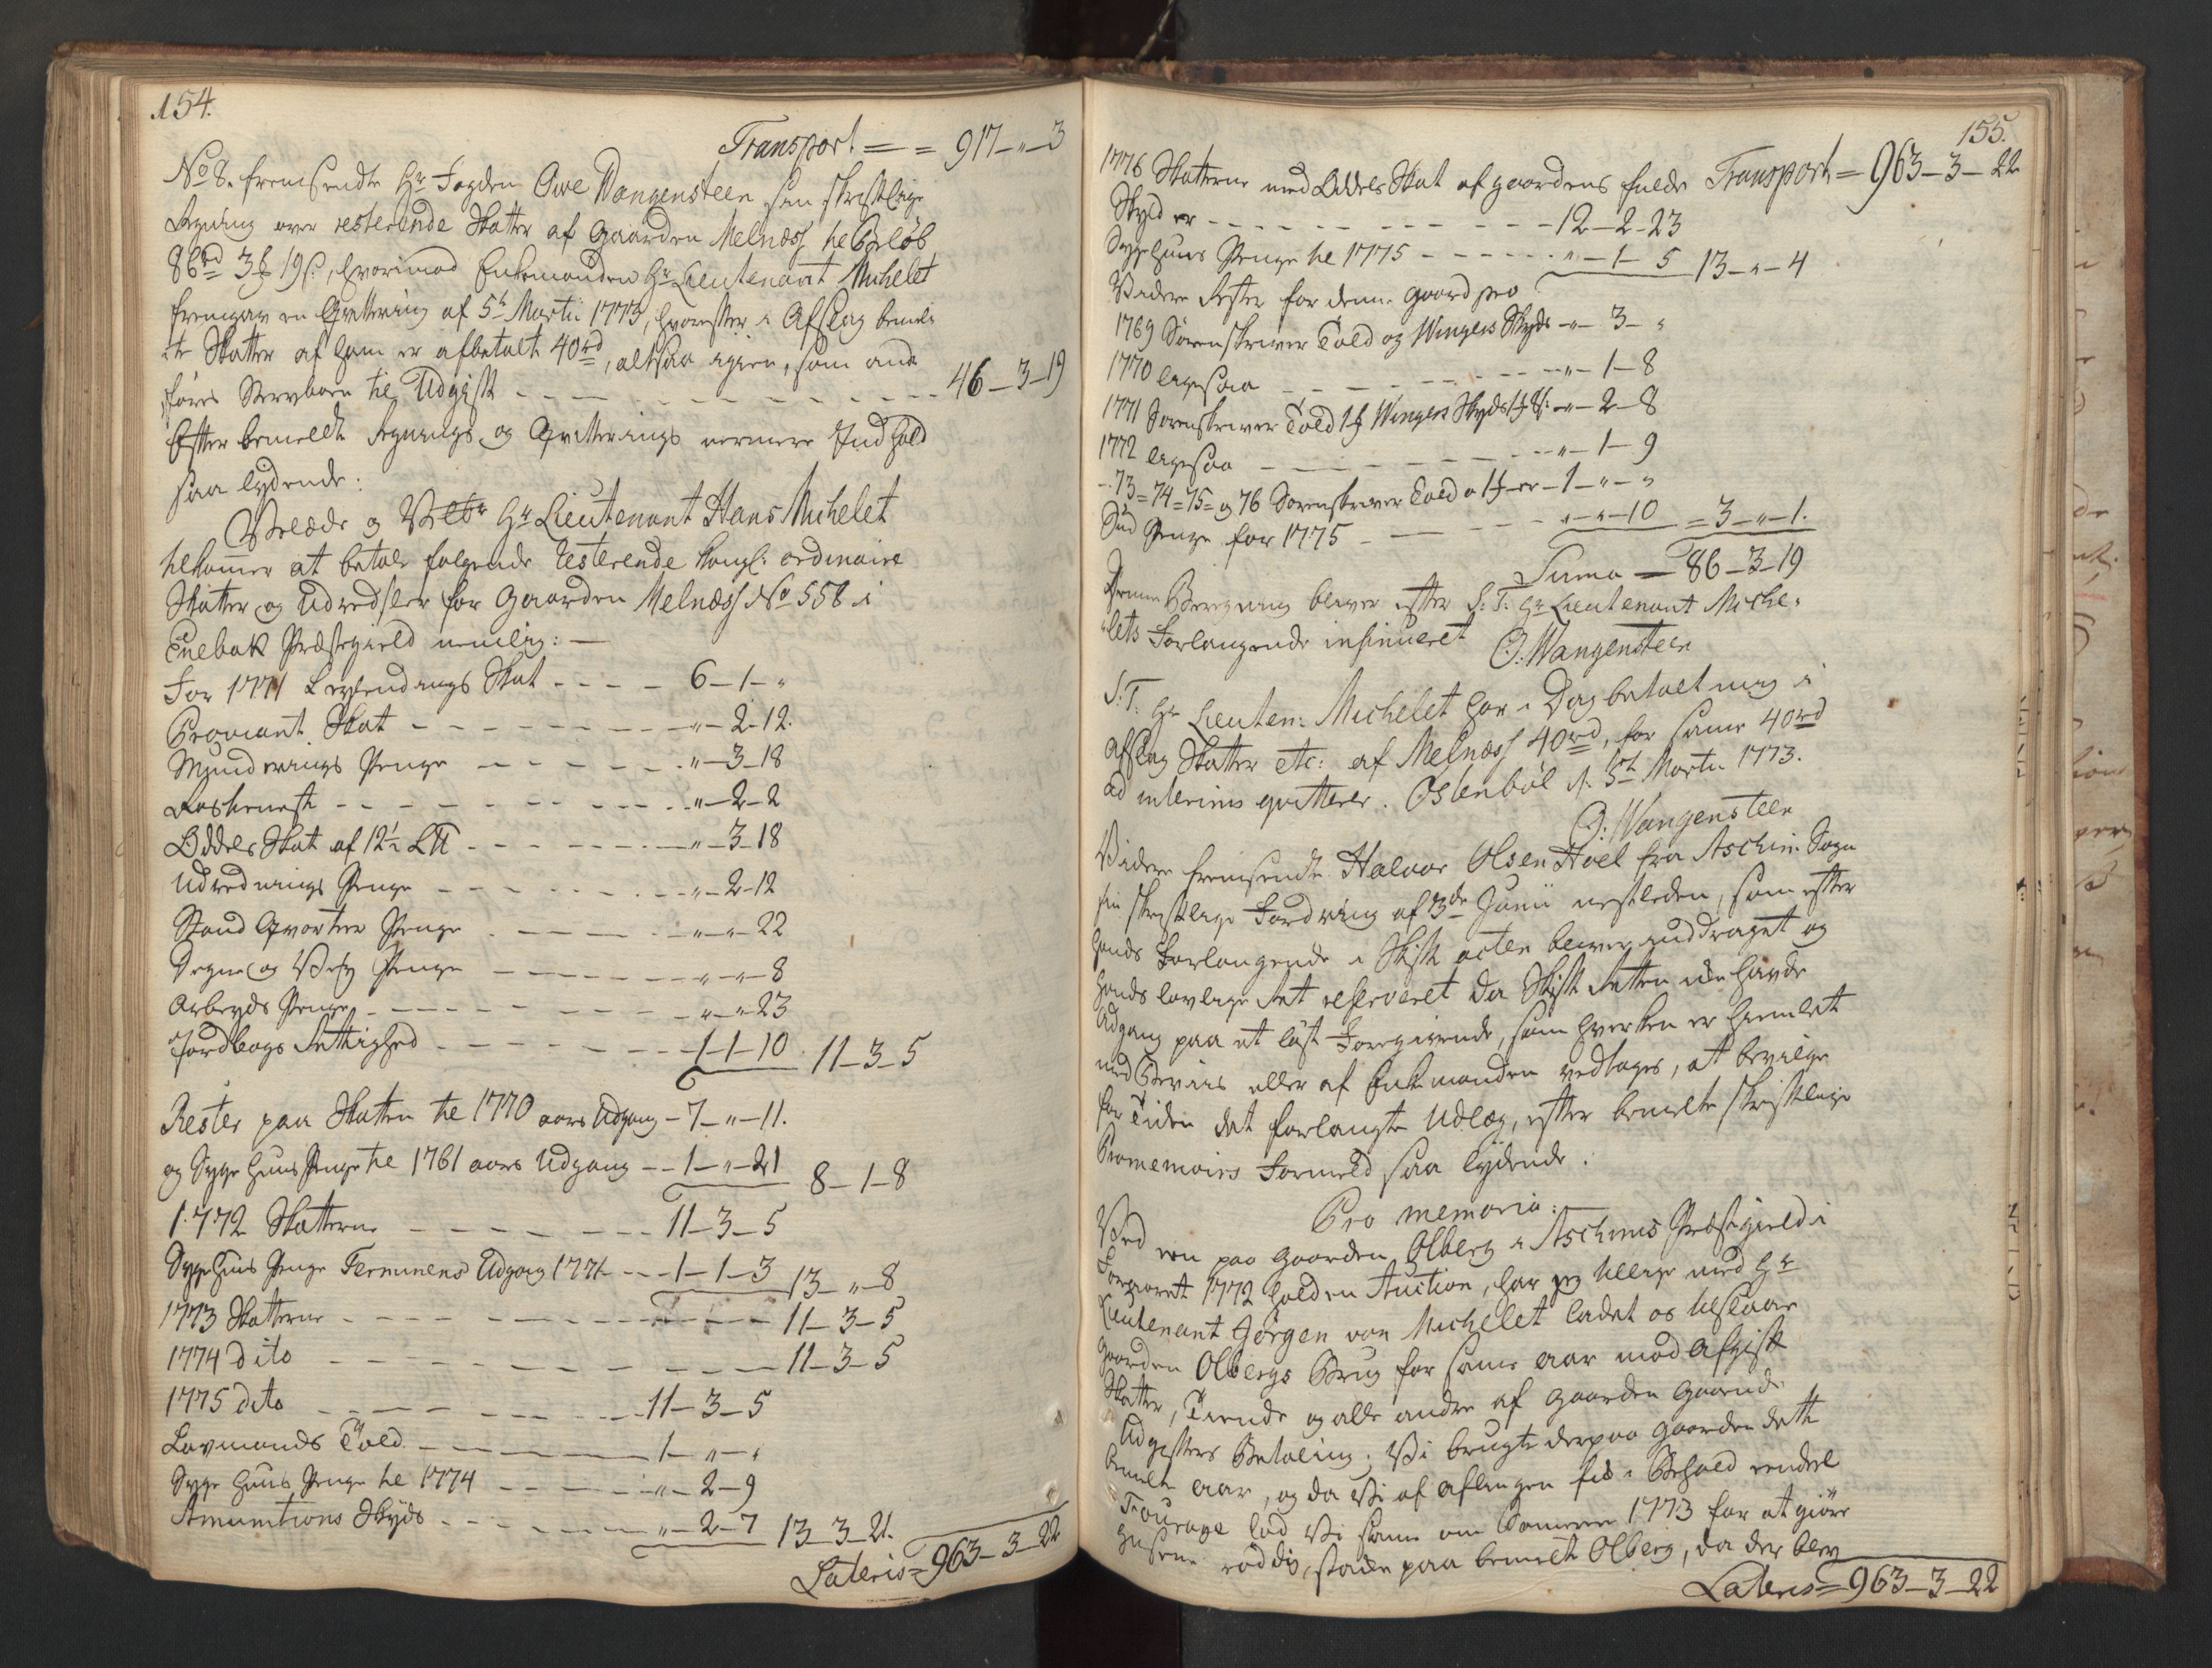 154.
Transport = = 917 - " - 3
No 8. fremsendte Hr Fogden Owe Wangensteen sin skriftlige
Regning over resterende Skatter af Gaarden Melness til Beløb
86rd 3 ƒ 19 s:, hvorimod Enkemanden Hr Lieutenant Michelet
fremgav en Qvittering af 5t Martii 1773, hvorefter i Afslag bemel-
te Skatter af ham er afbetalt 40rd, altsaa igien, som and-
føres Stervboen til Udgift - - - - 46 - 3 - 19
Efter bemeldte Regnings og Qvitterings nermere Indhold
saa lydende:
Velædle og Velbr Hr Lieutenant Hans Michelet
tilkommer at betale følgende resterende Kongl: ordinaire
Skatter og Udredsler for Gaarden Melness No 558 i
Enebak Præstegield nemlig: -
For 1771 Leylendings Skat - - - - 6 - 1 - "
Proviant Skat - - - - " - 2 - 12.
Munderings Penge - - - - " - 3 - 18
Rostieneste - - - - " - 2 - 2
Oddels Skat af 12½ L℔ - - - - " - 3 - 18
Udrednings Penge - - - - " - 2 - 12
Stand Qvarteer Penge - - - - " - " - 22
Degne og Vey Penge - - - - " - " - 8
Arbeyds Penge - - - - " - " 23
Jordbogs Rettighed - - - - 1 - 1 - 10. 11 - 3 - 5
Rester paa Skatten til 1770 aars Udgang - 7 - " - 11.
og Sygehuus Penge til 1761 aars Udgang - - 1 - " - 21 8 - 1 - 8
1772 Skatterne - - - - 11 - 3 - 5
Sygehuus Penge Terminens Udgang 1771 - - 1 - 1 - 3 13 - " - 8
1773 Skatterne - - - - 11 - 3 - 5
1774 dito - - - - 11 - 3 - 5
1775 dito - - - - 11 - 3 - 5
Lavmands Told - - - - 1 - " - "
Syge huus Penge til 1774 - - - - " - 2 - 9
Amunitions Skyds - - - - " - 2 - 7 13 - 3 - 21.
Lateris = 963 - 3 - 22
155.
1776 Skatterne med Oddels Skat af gaardens fulde Transport = 963 - 3 - 22
Skyld er - - - - 12 - 2 - 23
Sygehuus Penge til 1775 - - - - " - 1 - 5 13 - " - 4
Videre Rester for denne gaard pro
1769 Sorenskriver Told og Wingers Skyds - " - 3 - "
1770 ligesaa - - - - " - 1 - 8
1771 Sorenskriver Told 1 ƒ Wingers Skyds 1 ƒ 8 s: - " - 2 - 8
1772 ligesaa - - - - " - 1 - 9
- 73 = 74 = 75 = og 76 Sorenskriver Told a 1 ƒ er - 1 - " - "
Penge for 1775 - - - - " - " - 10 = 3 - " - 1.
Suma = 86 - 3 - 19
Denne Beregning bliver efter S: T: Hr Lieutenant Miche-
lets Forlangende insinueret O: Wangensteen
S: T: Hr Lieuten: Michelet har i Dag betalt mig i
Afslag Skatter etc: af Melness 40rd, for same 40rd
ad interims qvitterer. Ostenbøl d. 5t Martii 1773.
O: Wangensteen
Videre fremsendte Halvor Olsen Hoel fra Aschim Sogn
sin skriftlige Fordring af 3de Junii nestleden, som efter
hands Forlangende i Skift acten bliver inddraget og
hands lovlige Ret reserveret da Skift Retten icke havde
Adgang paa et løst Foregivende, som hverken er hiemlet
med Beviis eller af Enkemanden vedtages, at bevilge
for Tiden det forlangte Udlæg, efter bemelte skriftlige
Promemoirs Formeld saa lydende:
Pro memoria:
Ved een paa gaarden Olberg i Aschims Præstegield i
Foraaret 1772 holden Auction, har jeg tillige med Hr
Lieutenant Jörgen von Michelet ladet os tilslaae
gaarden Olbergs Brug for same aar mod Afgift
Skatter, Tiende og alle andre af gaarden gaaende
Udgifters Betaling; Vi brugte derpaa gaarden dette
bemelte aar, og da Vi af aflingen fik i Behold eendeel
Fourage lod Vi same om Sommeren 1773 for at giøre
husene røddig, staae paa bemelte Olberg, da der blev
Lateris = 963 - 3 - 22